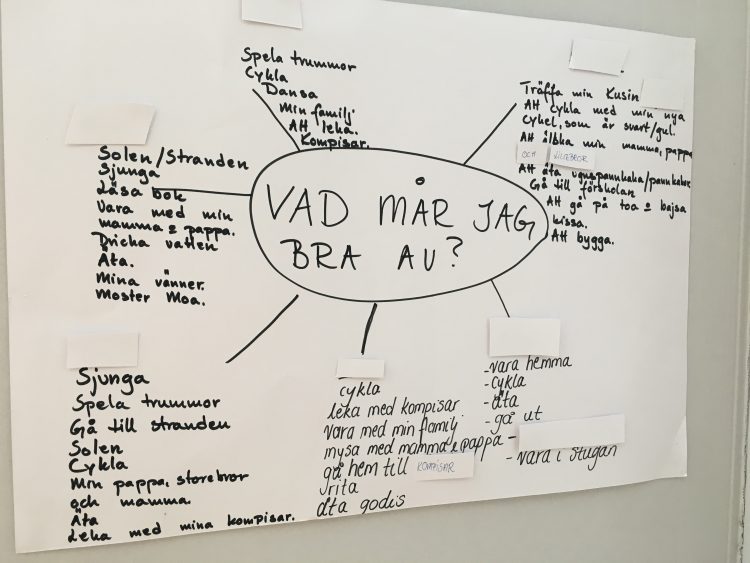 Spela trummor
Cykla
Dansa
Min familj
Att leka.
Kompisar.
Träffa min Kusin
Att cykla med min nya
Cykel, som är svart/gul.
Att älska min mamma, pappa
OCH LILLEBROR
Att äta ugnspannkaka/pannkakor
Gå till förskolan
Att gå på toa & bajsa
kissa.
Att bygga.
Solen/Stranden
Sjunga
Läsa bok
Vara med min
mamma & pappa.
Dricka vatten
Äta.
Mina vänner.
Moster Moa.
VAD MÅR JAG
BRA AV?
Sjunga
Spela trummor
Gå till stranden
Solen
Cykla
Min pappa, storebror
och mamma.
Äta
Leka med mina kompisar.
cykla
leka med kompisar
vara med min familj
mysa med mamma & pappa
gå hem till KOMPISAR
rita
äta godis
-vara hemma
-cykla
-äta
-gå ut
-
- vara i stugan